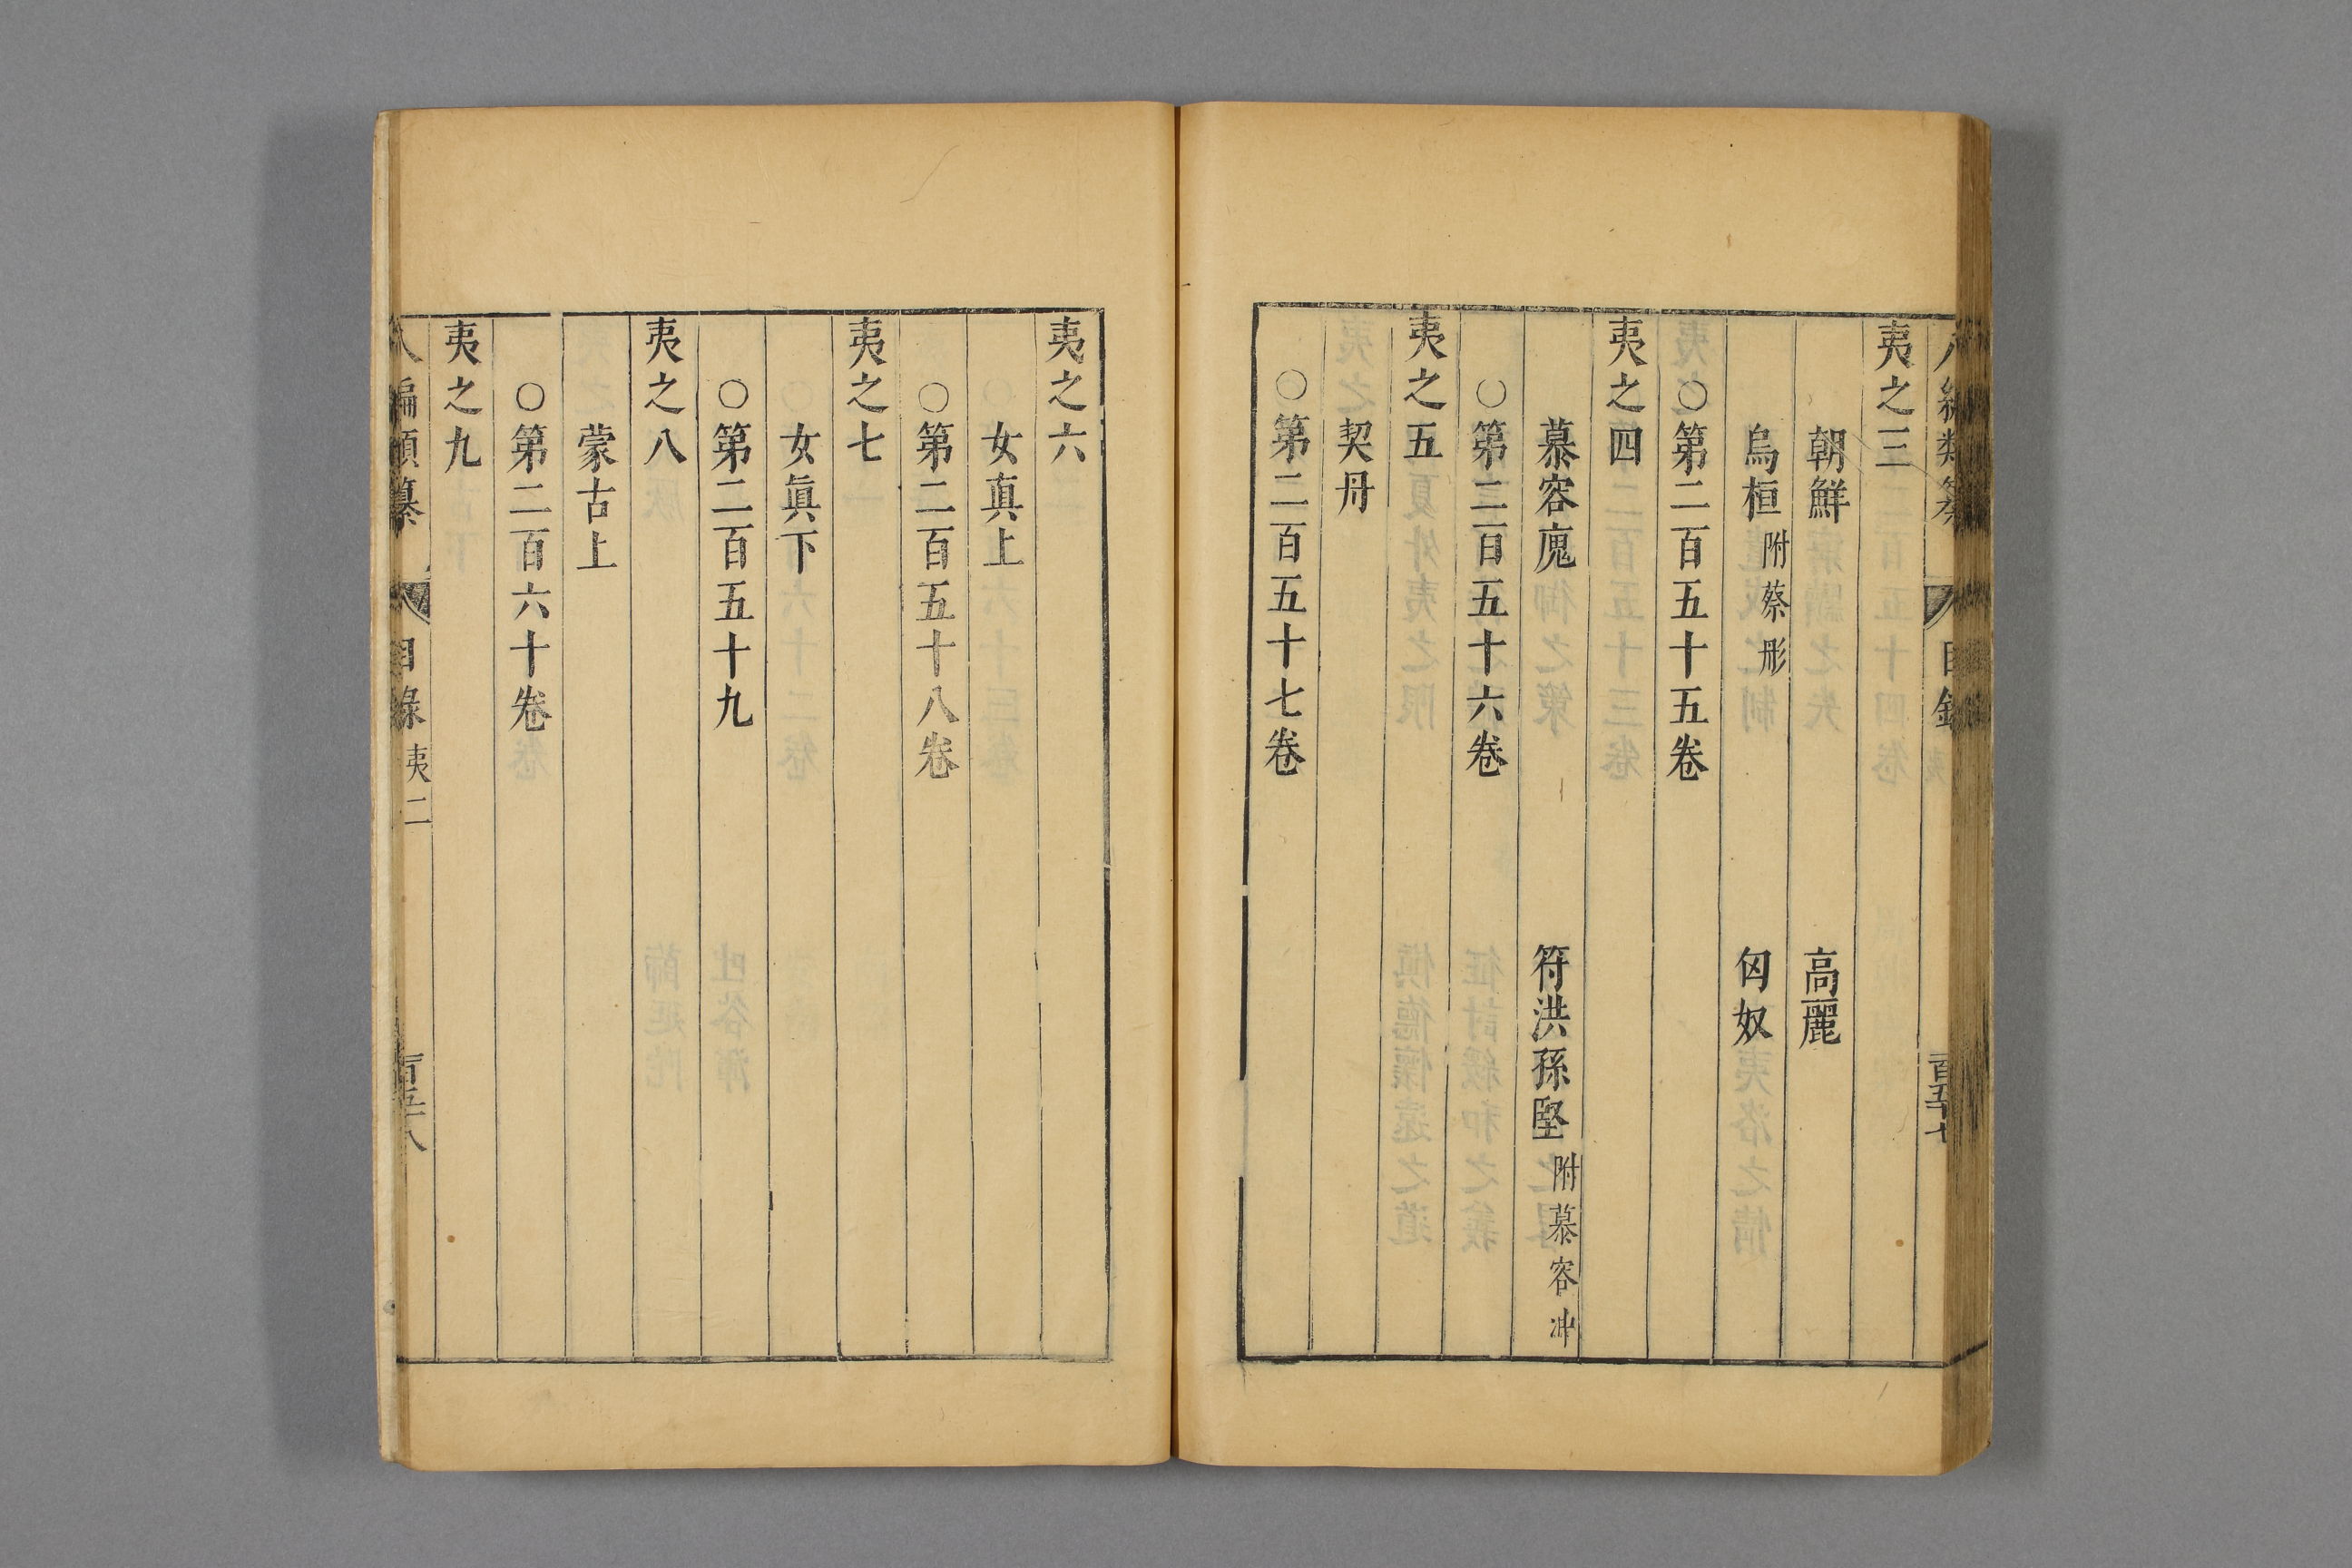 夷之三
朝鮮　高麗
烏桓附蔡彤　匈奴
○第二百五十五卷
夷之四
慕容廆　符洪孫堅附慕容冲
○第二百五十六卷
夷之五
契丹
○第二百五十七卷
夷之六
女真上
○第二百五十八卷
夷之七
女眞下
○第二百五十九
夷之八
蒙古上
○第二百六十卷
夷之九
八編類纂　目錄　夷二　百五十八